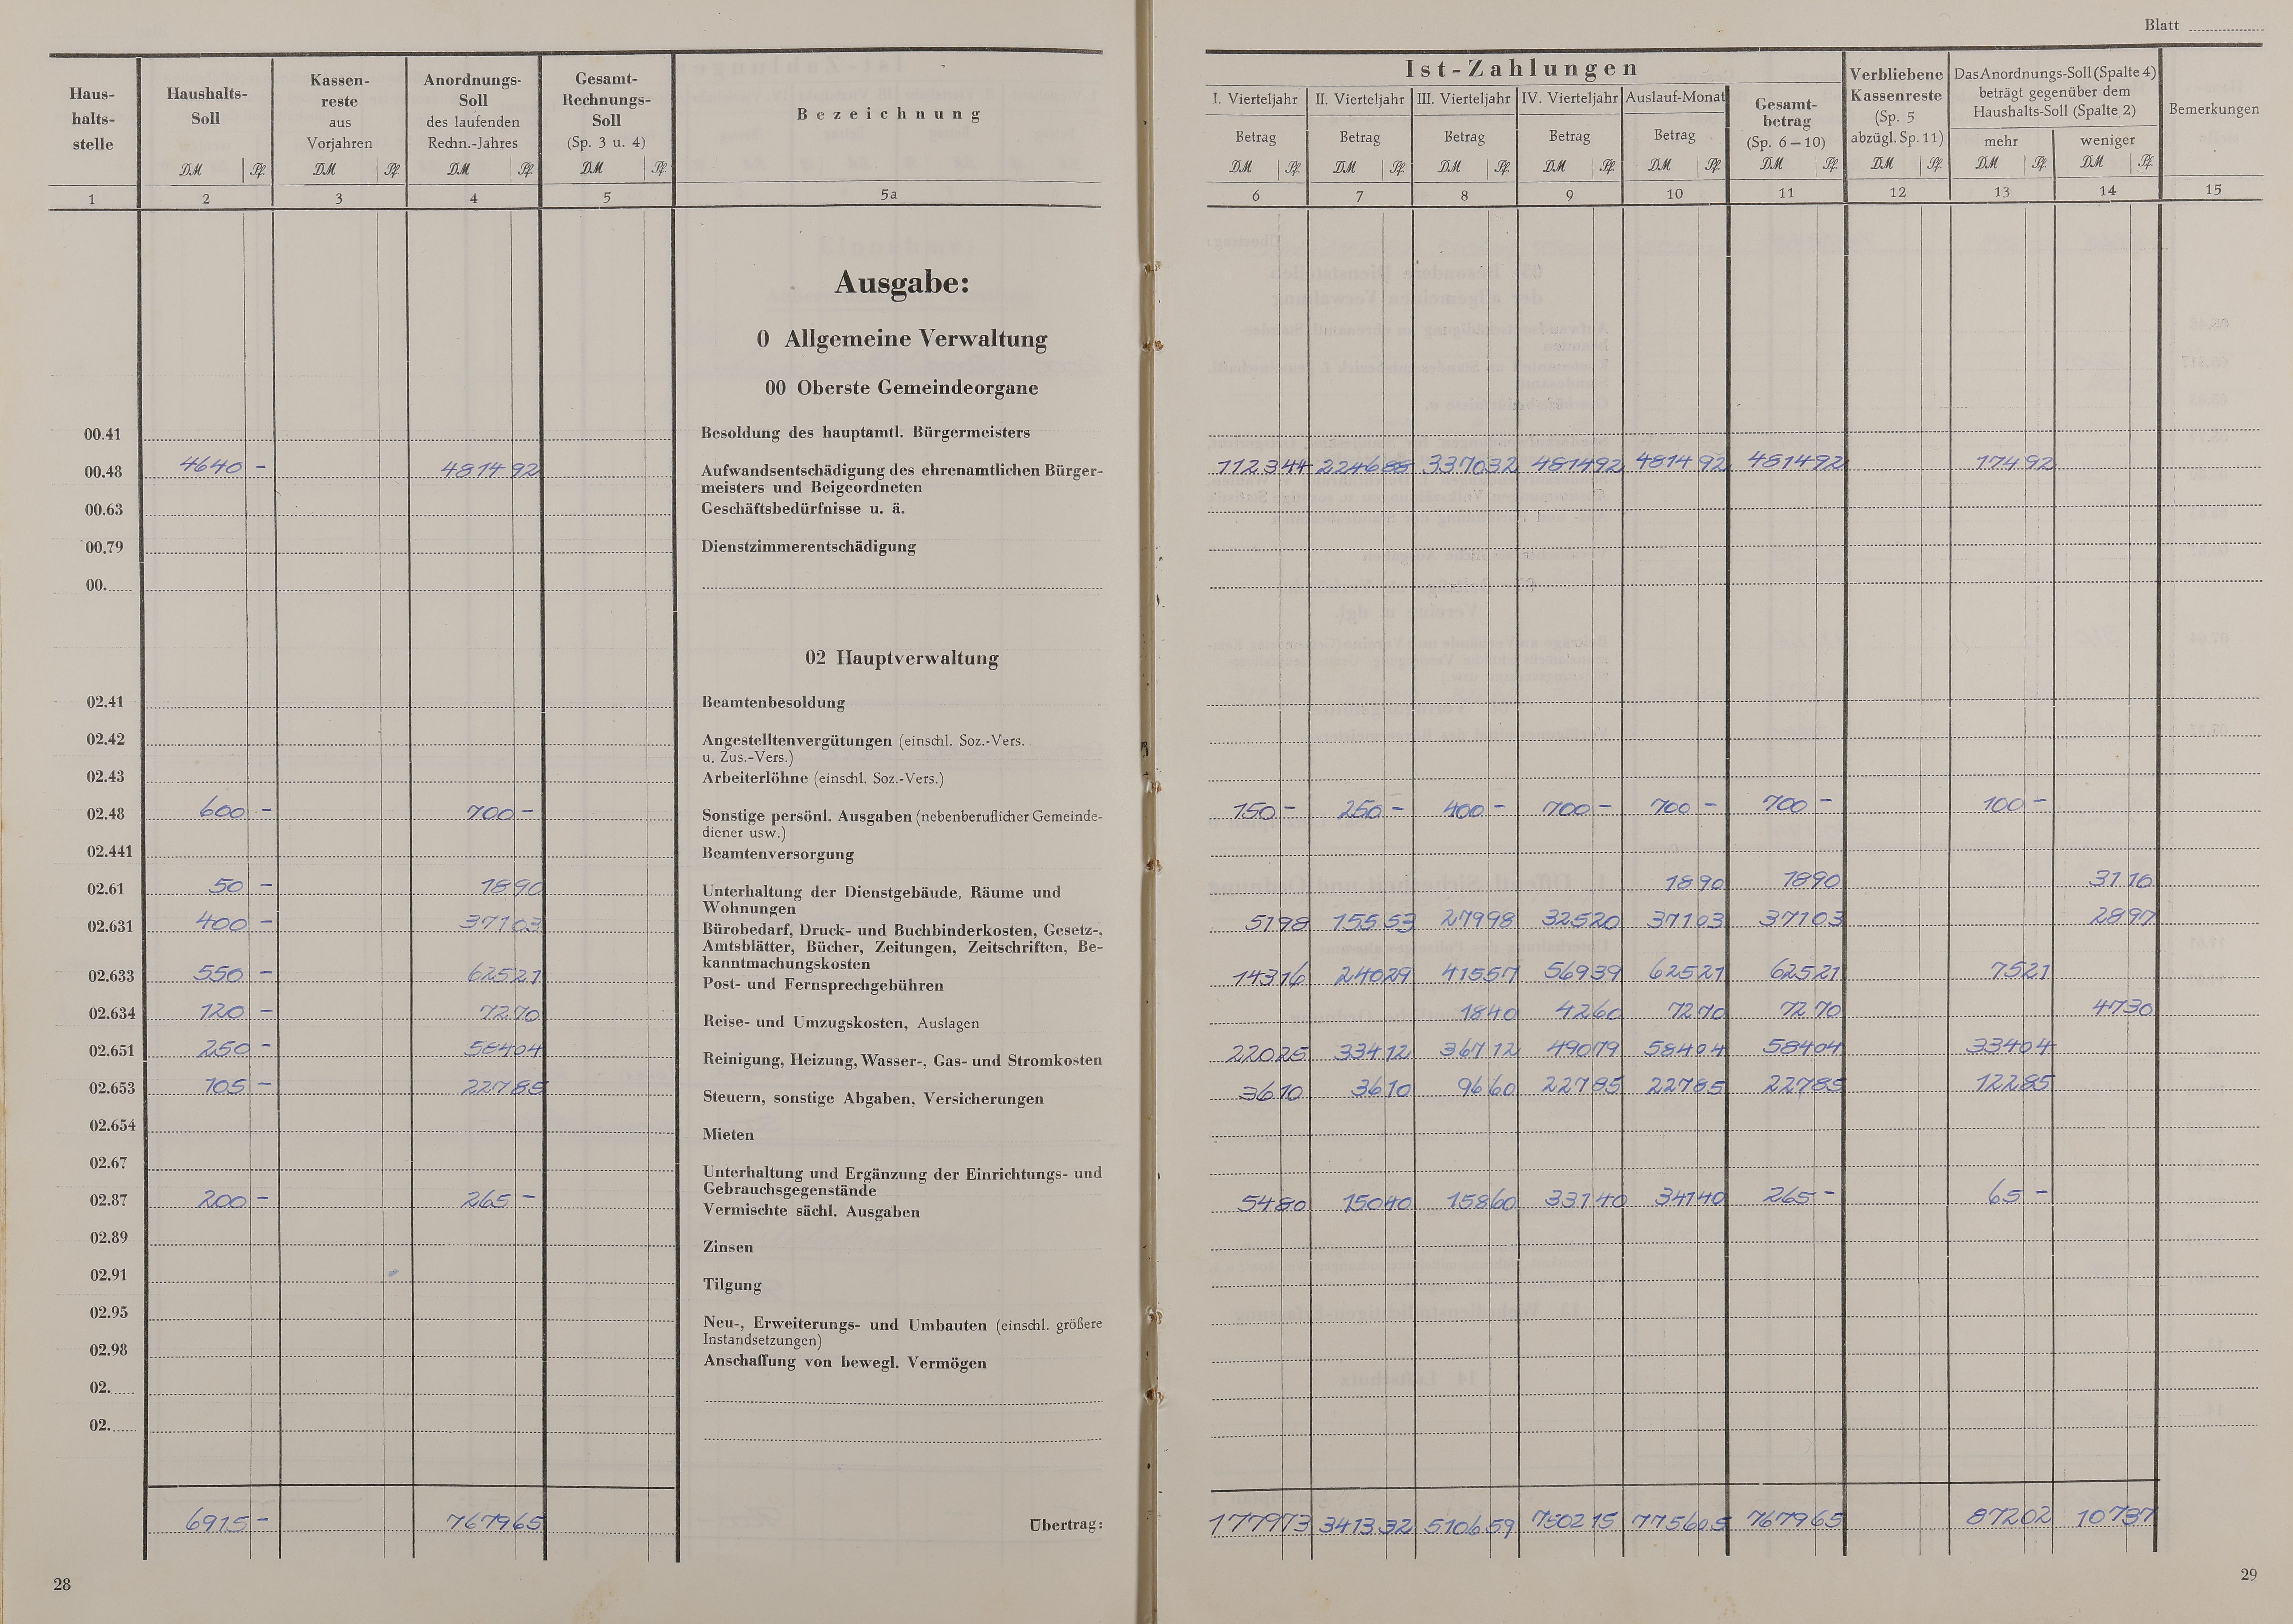 Blatt
Haus-
halts-
stelle
Haushalts-
Soll
Kassen-
reste
aus
Vorjahren
Anordnungs-
Soll
des laufenden
Rechn.-Jahres
Gesamt-
Rechnungs-
Soll
(Sp. 3 u. 4)
Bezeichnung
DM Pf. DM Pf. DM Pf. DM Pf.
1 2 3 4 5 5a
Ausgabe:
0 Allgemeine Verwaltung
00 Oberste Gemeindeorgane
00.41 Besoldung des hauptamtl. Bürgermeisters
00.48 4640 - 4814 92 Aufwandsentschädigung des ehrenamtlichen Bürger-
meisters und Beigeordneten
00.63 Geschäftsbedürfnisse u. ä.
00.79 Dienstzimmerentschädigung
00.
02 Hauptverwaltung
02.41 Beamtenbesoldung
02.42 Angestelltenvergütungen (einschl. Soz.-Vers.
u. Zus.-Vers.)
02.43 Arbeiterlöhne (einschl. Soz.-Vers.)
02.48 600 - 700 - Sonstige persönl. Ausgaben (nebenberuflicher Gemeinde-
diener usw.)
02.441 Beamtenversorgung
02.61 50 - 18 90 Unterhaltung der Dienstgebäude, Räume und
Wohnungen
02.631 400 - 371 03 Bürobedarf, Druck- und Buchbinderkosten, Gesetz-,
Amtsblätter, Bücher, Zeitungen, Zeitschriften, Be-
kanntmachungskosten
02.633 550 - 625 21 Post- und Fernsprechgebühren
02.634 120 - 72 70 Reise- und Umzugskosten, Auslagen
02.651 250 - 584 04 Reinigung, Heizung, Wasser-, Gas- und Stromkosten
02.653 105 - 227 85 Steuern, sonstige Abgaben, Versicherungen
02.654 Mieten
02.67 Unterhaltung und Ergänzung der Einrichtungs- und
Gebrauchsgegenstände
02.87 200 - 265 - Vermischte sächl. Ausgaben
02.89 Zinsen
02.91 Tilgung
02.95 Neu-, Erweiterungs- und Umbauten (einschl. größere
Instandsetzungen)
02.98 Anschaffung von bewegl. Vermögen
02.
02.
6915 - 7679 65 Übertrag:
28
Ist-Zahlungen
I. Vierteljahr II. Vierteljahr III. Vierteljahr IV. Vierteljahr Auslauf-Monat
Betrag Betrag Betrag Betrag Betrag
Gesamt-
betrag
(Sp. 6 – 10)
Verbliebene
Kassenreste
(Sp. 5
abzügl. Sp. 11)
Das Anordnungs-Soll (Spalte 4)
beträgt gegenüber dem
Haushalts-Soll (Spalte 2)
mehr weniger
Bemerkungen
DM Pf. DM Pf. DM Pf. DM Pf. DM Pf. DM Pf. DM Pf. DM Pf. DM Pf.
6 7 8 9 10 11 12 13 14 15
1123 44 2246 88 3370 32 4814 92 4814 92 4814 92 174 92
150 - 250 - 400 - 700 - 700 - 700 - 100 -
18 90 18 90 31 10
51 98 155 53 279 98 325 20 371 03 371 03 28 97
143 16 240 29 415 57 569 39 625 21 625 21 75 21
18 40 42 60 72 70 72 70 47 30
220 25 334 12 367 12 490 79 584 04 584 04 334 04
36 10 36 10 96 60 227 85 227 85 227 85 122 85
54 80 150 40 158 60 331 40 341 40 265 - 65 -
1779 73 3413 32 5106 59 7502 15 7756 05 7679 65 872 02 107 37
29